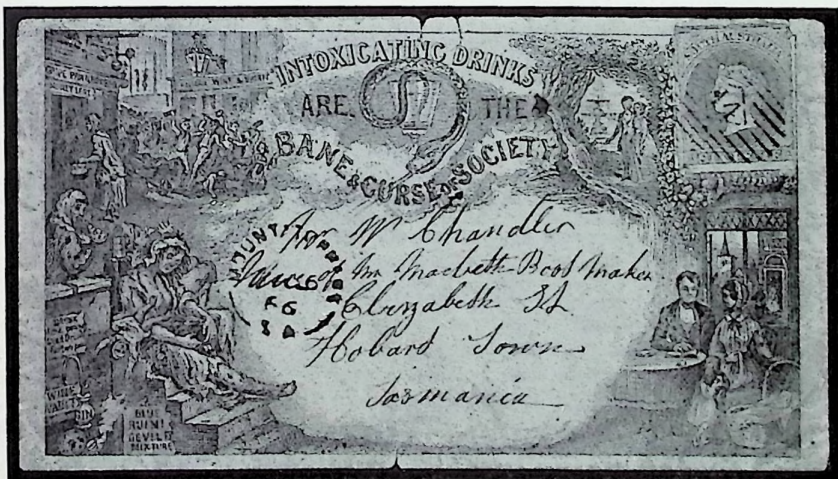 INTOXICATING DRINKS
ARE THE
BANE & CURSE OF SOCIETY
SOUTH AUSTRALIA
Mr W Chandler
Mr Macbeth Boot Maker
Elizabeth St
Hobart Town
Tasmania
WINE
VAULTS
GIN
BLUE
RUIN &
DEVIL'S
MIXTURE